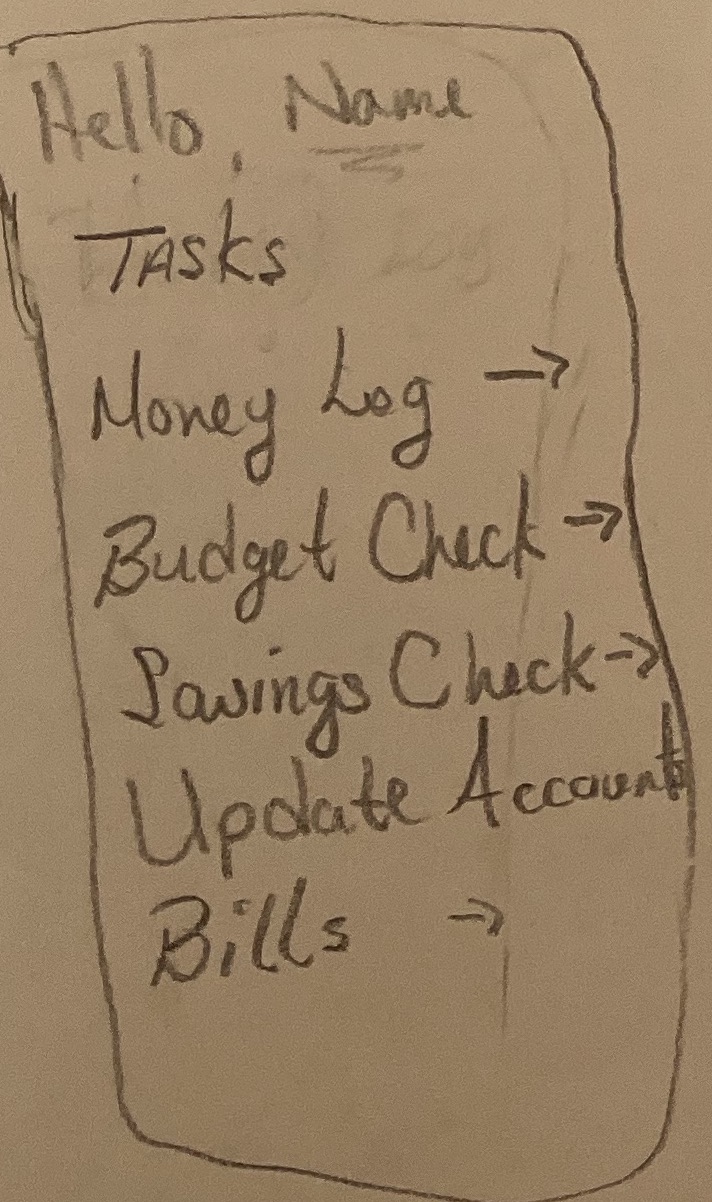 Hello, Name
Tasks
Money Log →
Budget Check →
Savings Check →
Update Account
Bills →